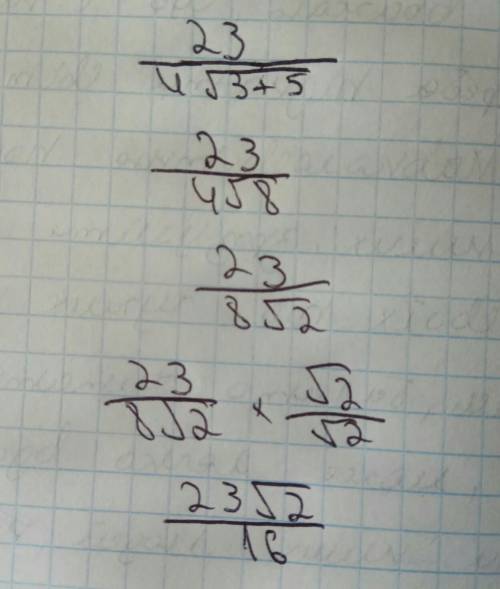 23
4√3+5
23
4√8
23
8√2
23/8√2 × √2/√2
23√2
16